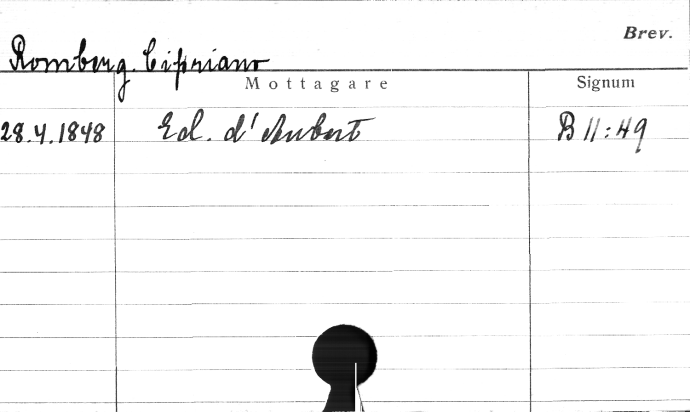 Brev.
Romberg. Cipriano
Mottagare Signum
28.4.1848 Ed. d'Aubert B 11:49